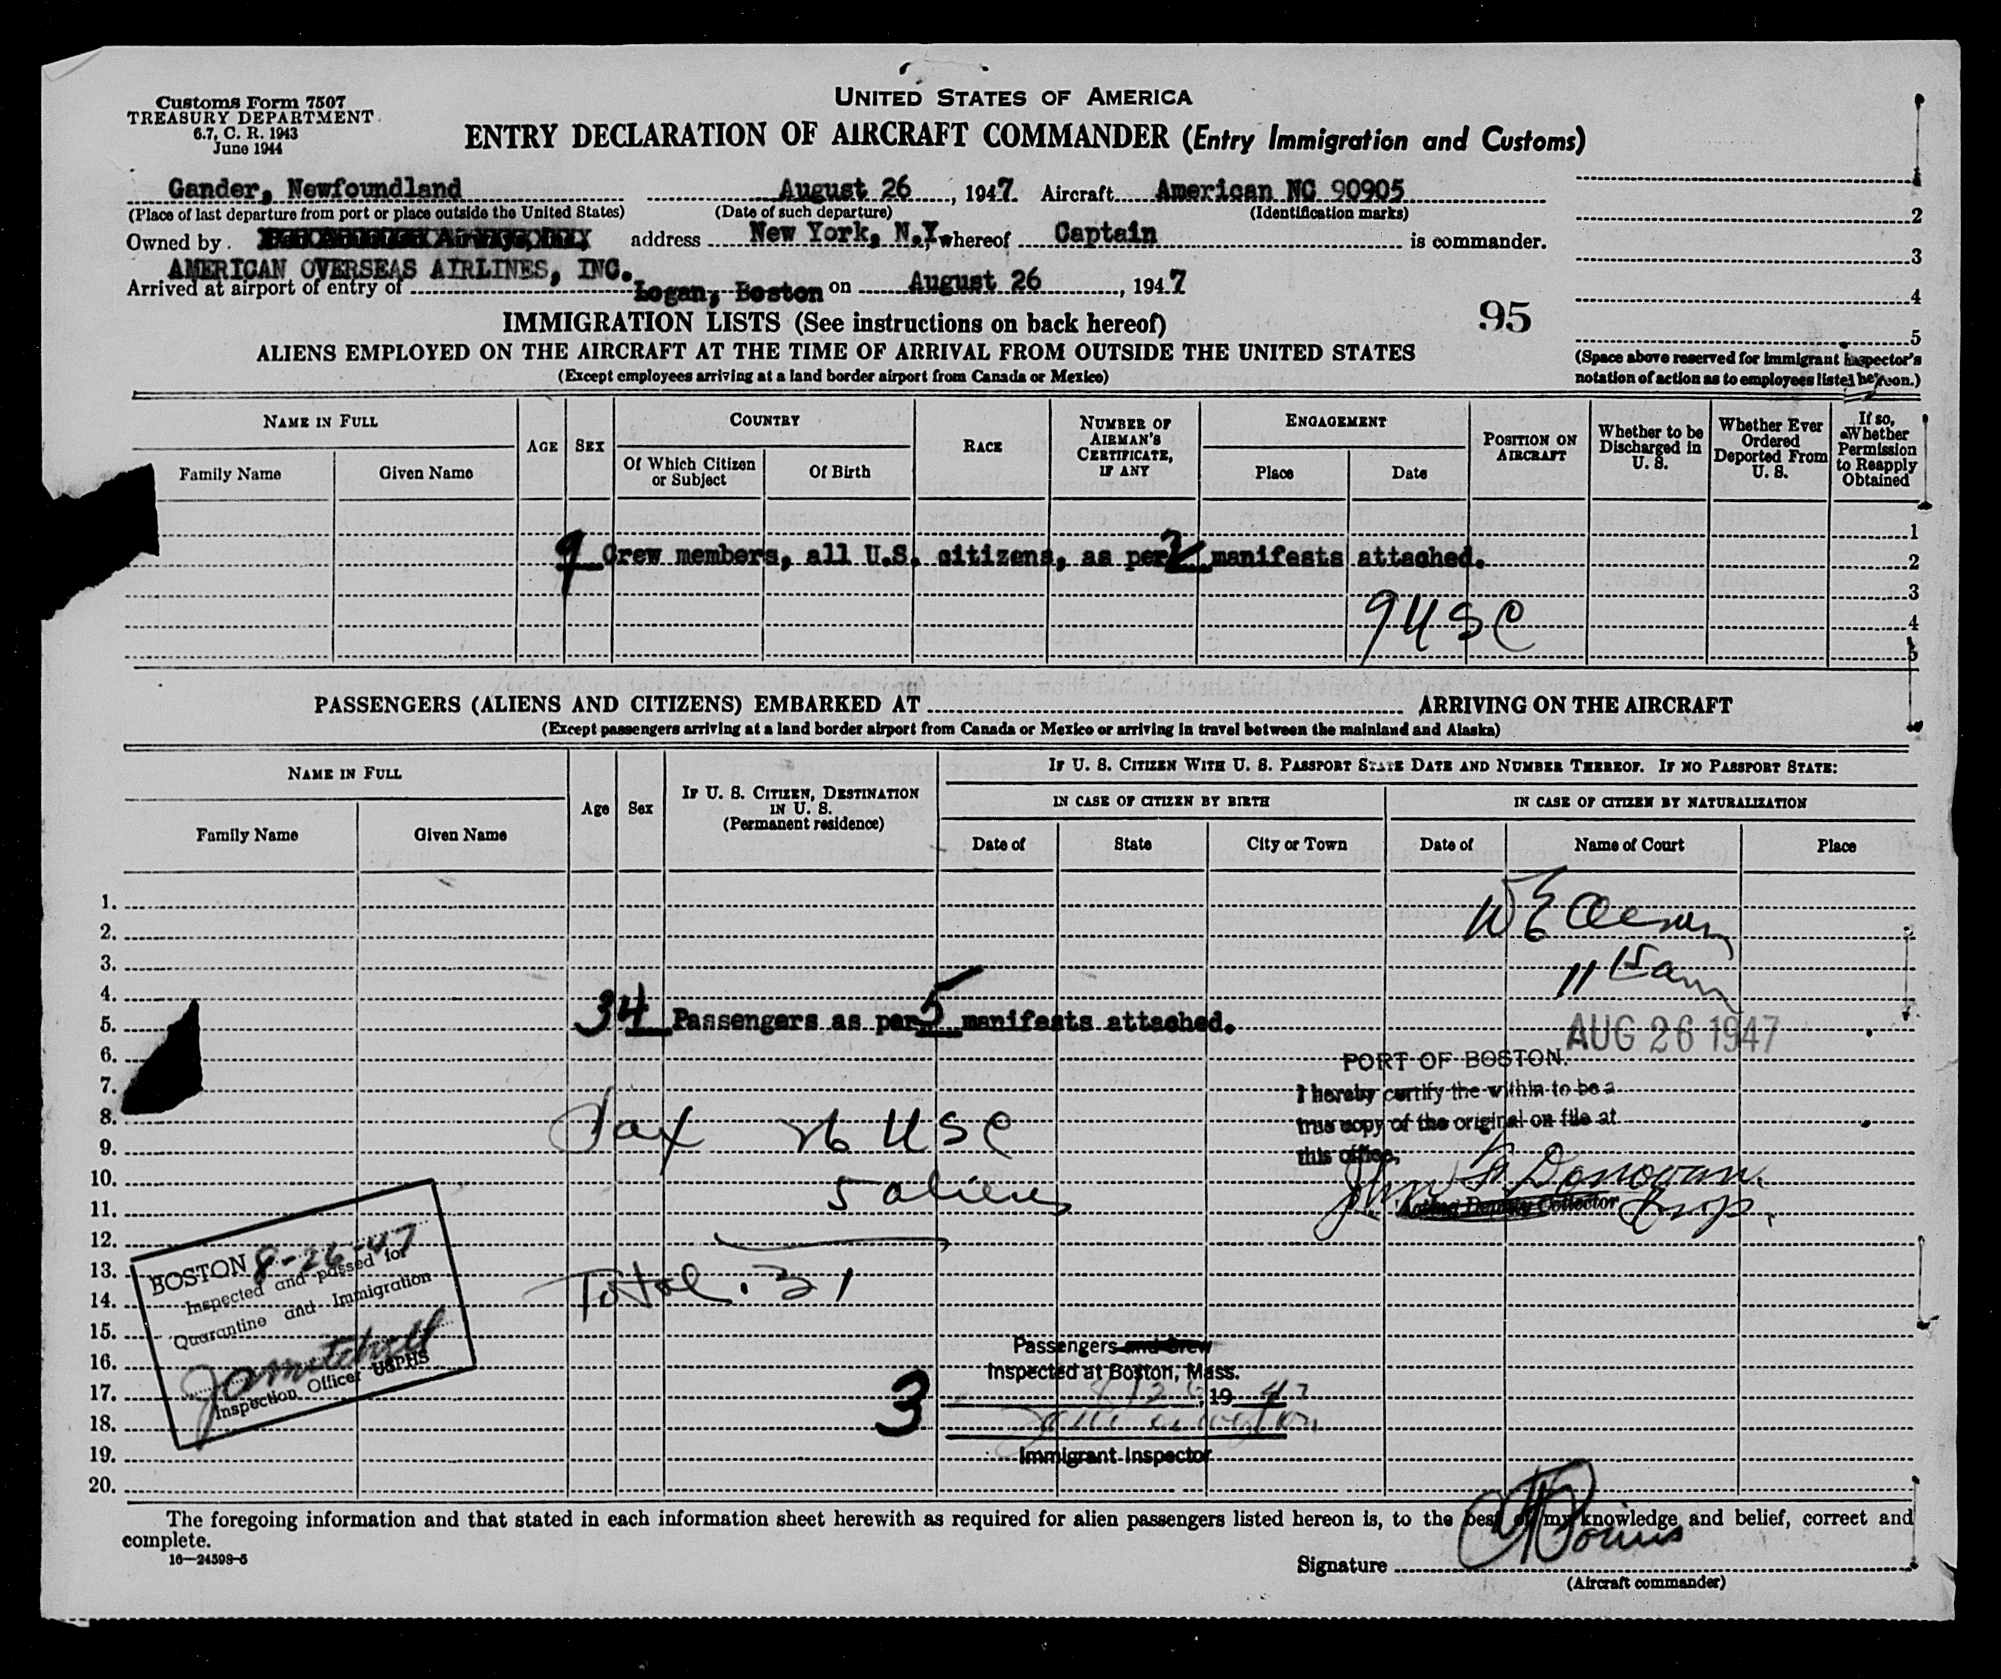 Customs Form 7507
TREASURY DEPARTMENT
6.7, C. R. 1943
June 1944
UNITED STATES OF AMERICA
ENTRY DECLARATION OF AIRCRAFT COMMANDER (Entry Immigration and Customs)
Gander, Newfoundland August 26, 1947. Aircraft American NC 90905
(Place of last departure from port or place outside the United States) (Date of such departure) (Identification marks)
Owned by address New York, N.Y. whereof Captain is commander.
AMERICAN OVERSEAS AIRLINES, INC.
Arrived at airport of entry of Logan, Boston on August 26, 1947
1
2
3
4
5
(Space above reserved for immigrant inspector's
notation of action as to employees listed hereon.)
95
IMMIGRATION LISTS (See instructions on back hereof)
ALIENS EMPLOYED ON THE AIRCRAFT AT THE TIME OF ARRIVAL FROM OUTSIDE THE UNITED STATES
(Except employees arriving at a land border airport from Canada or Mexico)
NAME IN FULL
Family Name Given Name
AGE SEX
COUNTRY
Of Which Citizen or Subject
Of Birth
RACE
NUMBER OF AIRMAN'S CERTIFICATE, IF ANY
ENGAGEMENT
Place Date
POSITION ON AIRCRAFT
Whether to be Discharged in U. S.
Whether Ever Ordered Deported From U. S.
If so, Whether Permission to Reapply Obtained
1
9 Crew members, all U.S. citizens, as per 2 manifests attached. 2
3
9 USC 4
5
PASSENGERS (ALIENS AND CITIZENS) EMBARKED AT ARRIVING ON THE AIRCRAFT
(Except passengers arriving at a land border airport from Canada or Mexico or arriving in travel between the mainland and Alaska)
NAME IN FULL
Family Name Given Name
Age Sex
IF U. S. CITIZEN, DESTINATION IN U. S.
(Permanent residence)
IF U. S. CITIZEN WITH U. S. PASSPORT STATE DATE AND NUMBER THEREOF. IF NO PASSPORT STATE:
IN CASE OF CITIZEN BY BIRTH IN CASE OF CITIZEN BY NATURALIZATION
Date of State City or Town Date of Name of Court Place
1.
2.
3.
11 15 am
4.
5. 34 Passengers as per 5 manifests attached.
AUG 26 1947
6.
PORT OF BOSTON.
7.
I hereby certify the within to be a
8.
true copy of the original on file at
26 USC
9.
this office,
10.
John F Donovan.
5 aliens
11.
Acting Deputy Collector Insp.
12.
13.
Total. 31
14.
15.
Passengers and Crew
16.
Inspected at Boston, Mass.
17.
8/26, 1947
3
18.
19.
Immigrant Inspector
20.
BOSTON 8-26-47
Inspected and passed for
Quarantine and Immigration
JA Mitchell
Inspection Officer USPHS
The foregoing information and that stated in each information sheet herewith as required for alien passengers listed hereon is, to the best of my knowledge and belief, correct and
complete.
16—24598-5
Signature
(Aircraft commander)